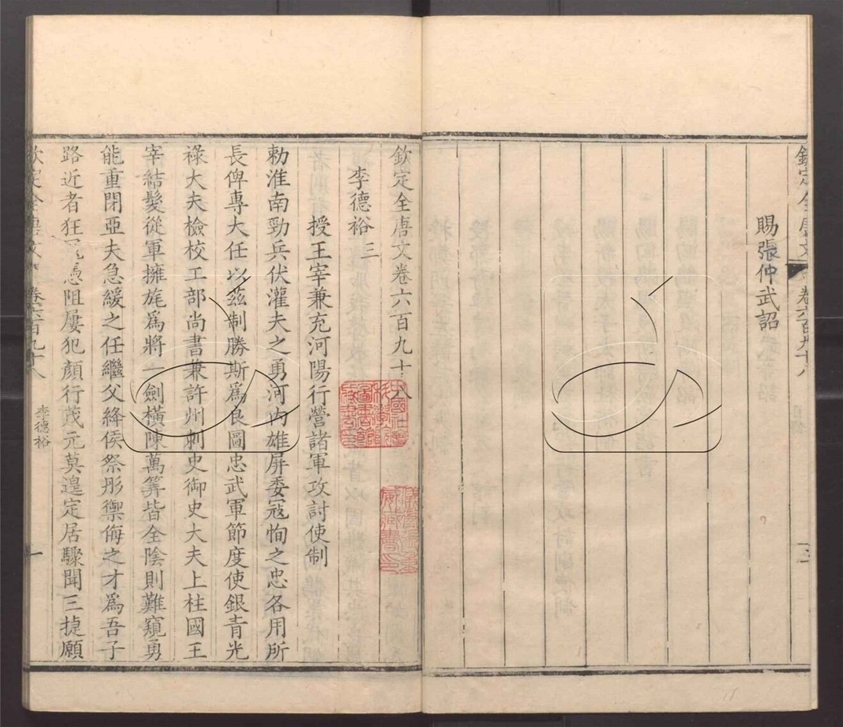 欽定全唐文 卷六百九十八
賜張仲武詔
三
欽定全唐文卷六百九十八
李德裕三
授王宰兼充河陽行營諸軍攻討使制
勅淮南勁兵伏灌夫之勇河內雄屏委冦恂之忠各用所
長俾專大任以茲制勝斯爲良圖忠武軍節度使銀青光
祿大夫檢校工部尚書兼許州刺史御史大夫上柱國王
宰結髮從軍擁旄爲將一劍橫陳萬筭皆全陰則難窺勇
能重閉亞夫急緩之任繼父絳侯祭彤禦侮之才爲吾子
路近者狂憑阻屢犯顏行茂元莫遑定居驟聞三捷願
欽定全唐文 卷六百九十八 李德裕 一